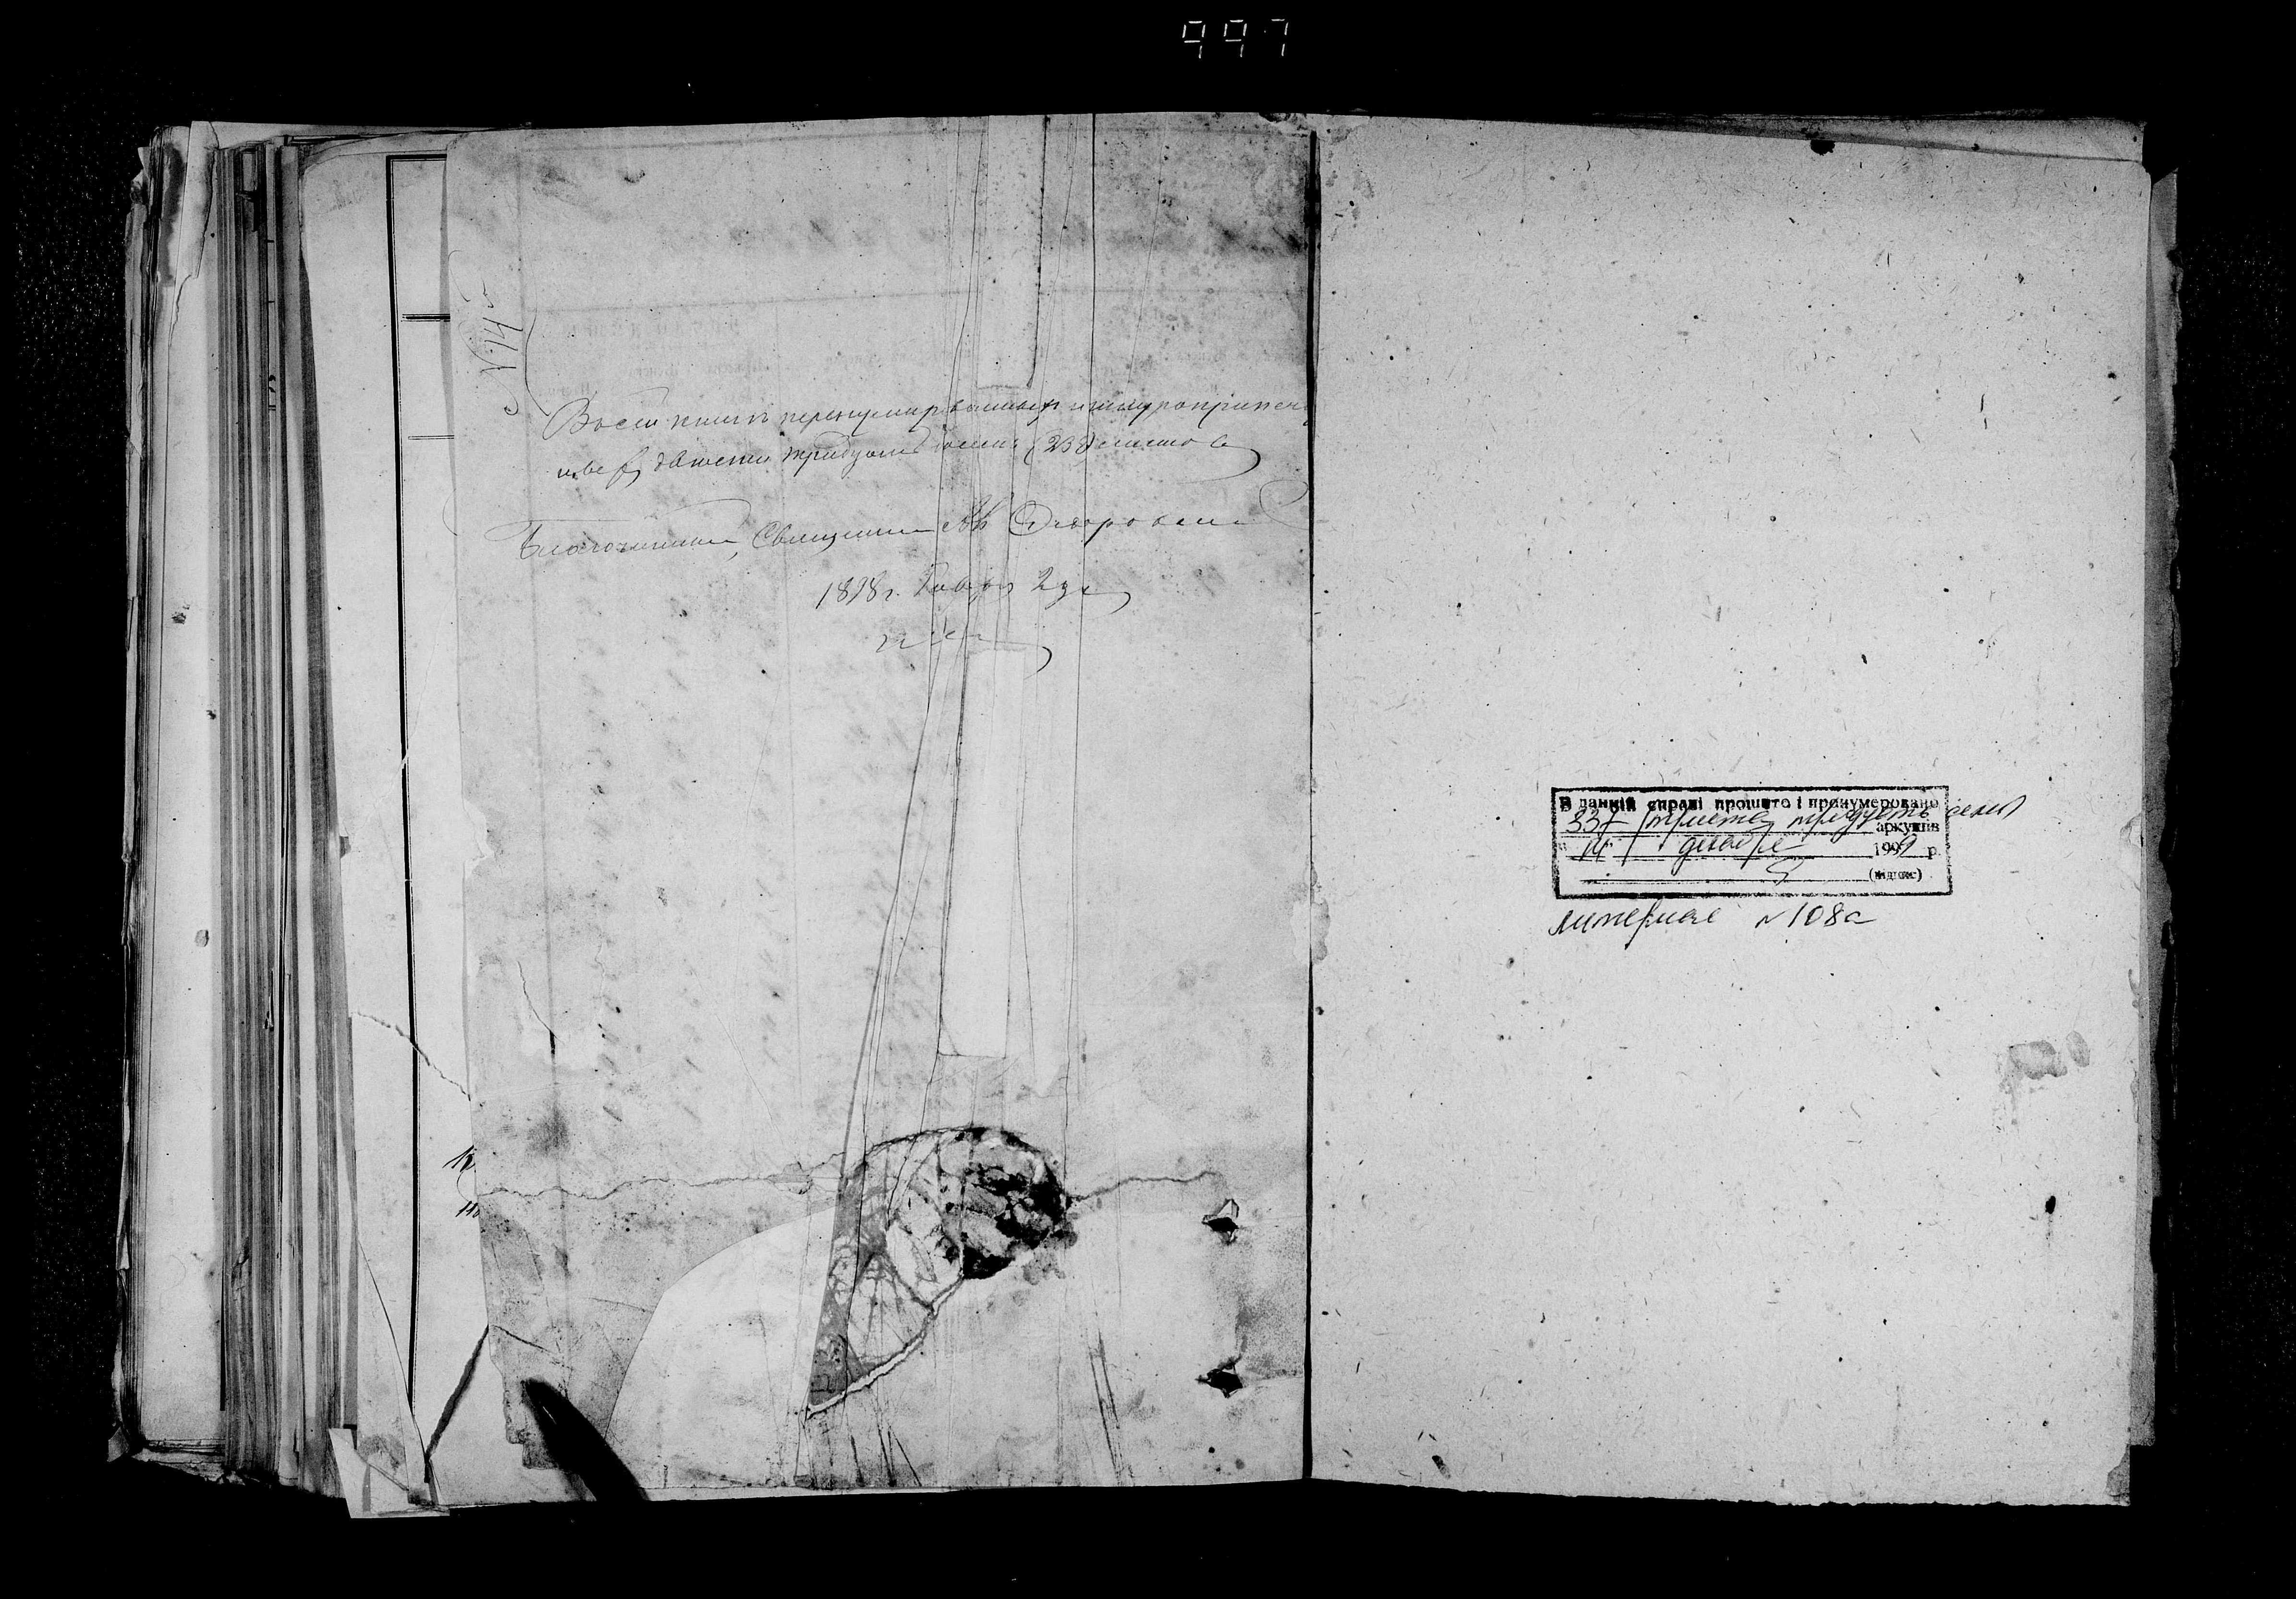 997
№ 145
Въ сей книгѣ перенумерованныхъ и шнуроприпеч
двѣсти тридцать восемь (238) листовъ
Благочинный, Священник
1898 г. Января 2 дня
В данній справі прошито і пронумеровано
337 (триста тридцать семь) аркушів
"14" декабря 1991 р.
(підпис)
литерные № 108а